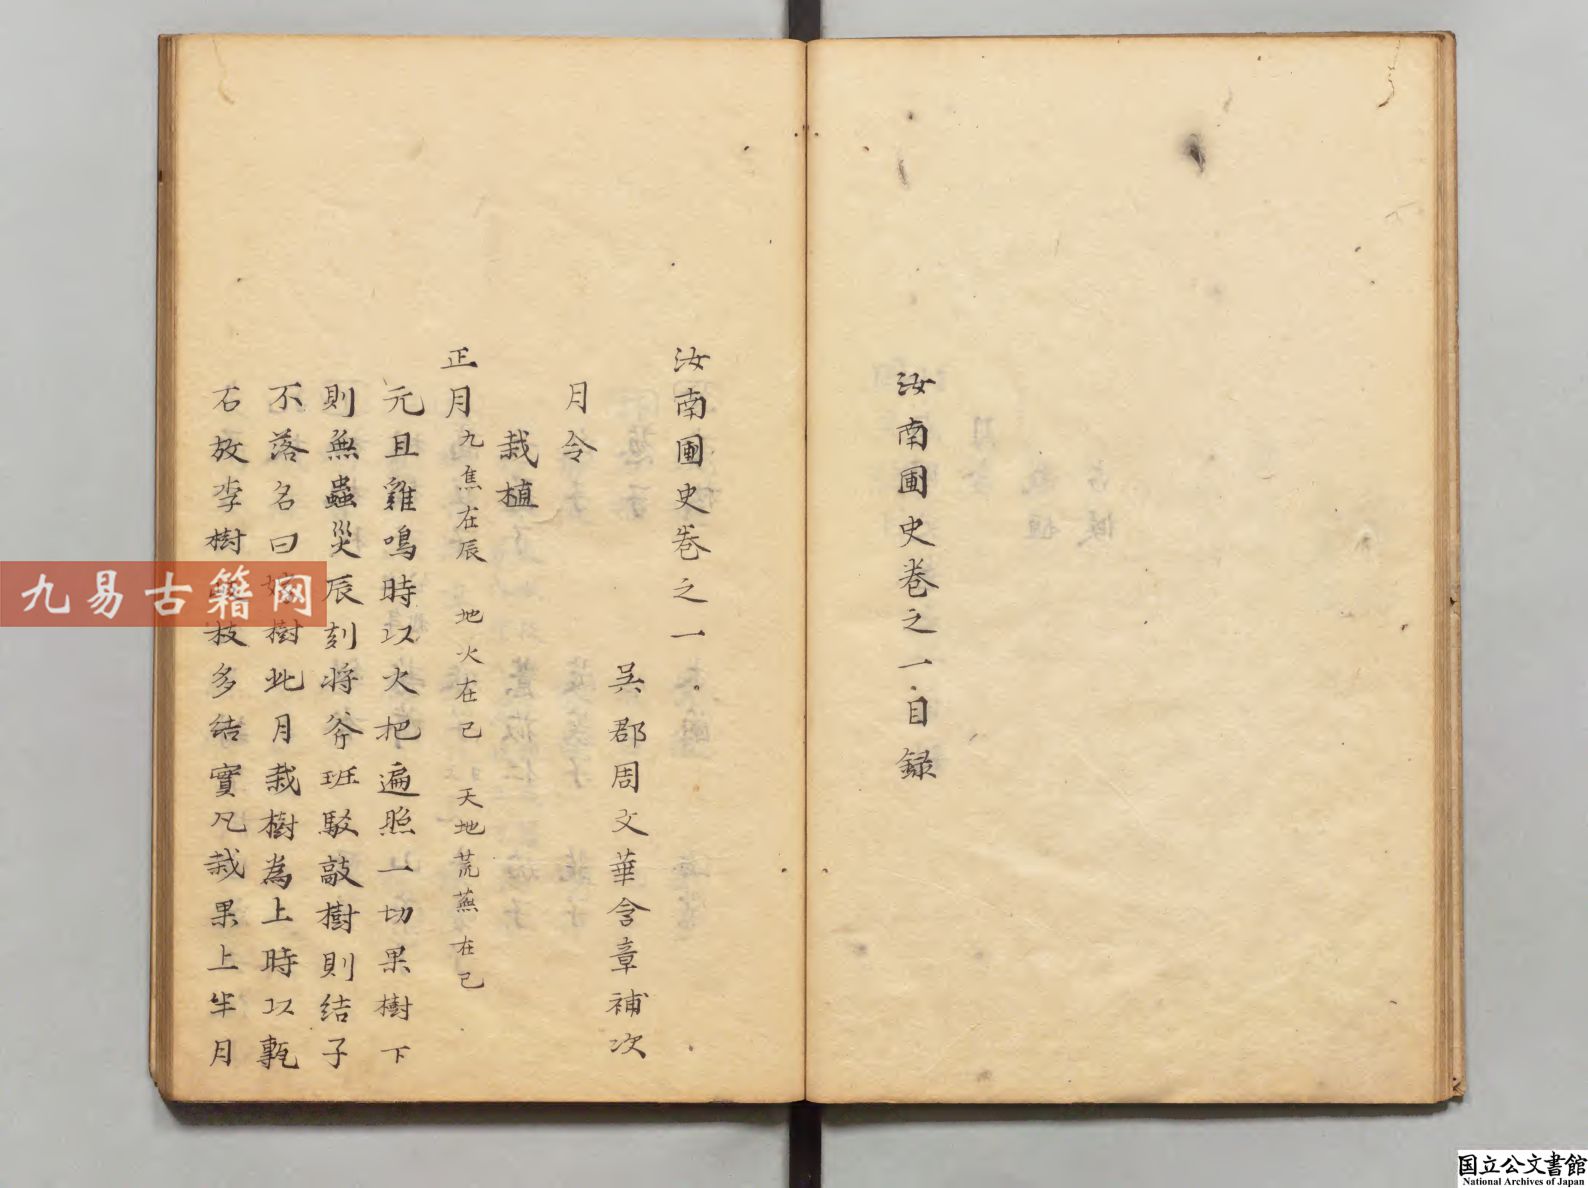 汝南圃史卷之一目録
汝南圃史卷之一
吳郡周文華含章補次
月令
栽植
正月九焦在辰 地火在己 天地荒蕪在己
元旦雞鳴時以火把遍照一切果樹下
則無蟲災辰刻将斧班駁敲樹則結子
不落名曰嫁樹此月栽樹為上時以甎
石放李樹枝多結實凡栽果上半月
九易古籍网
国立公文書館
National Archives of Japan